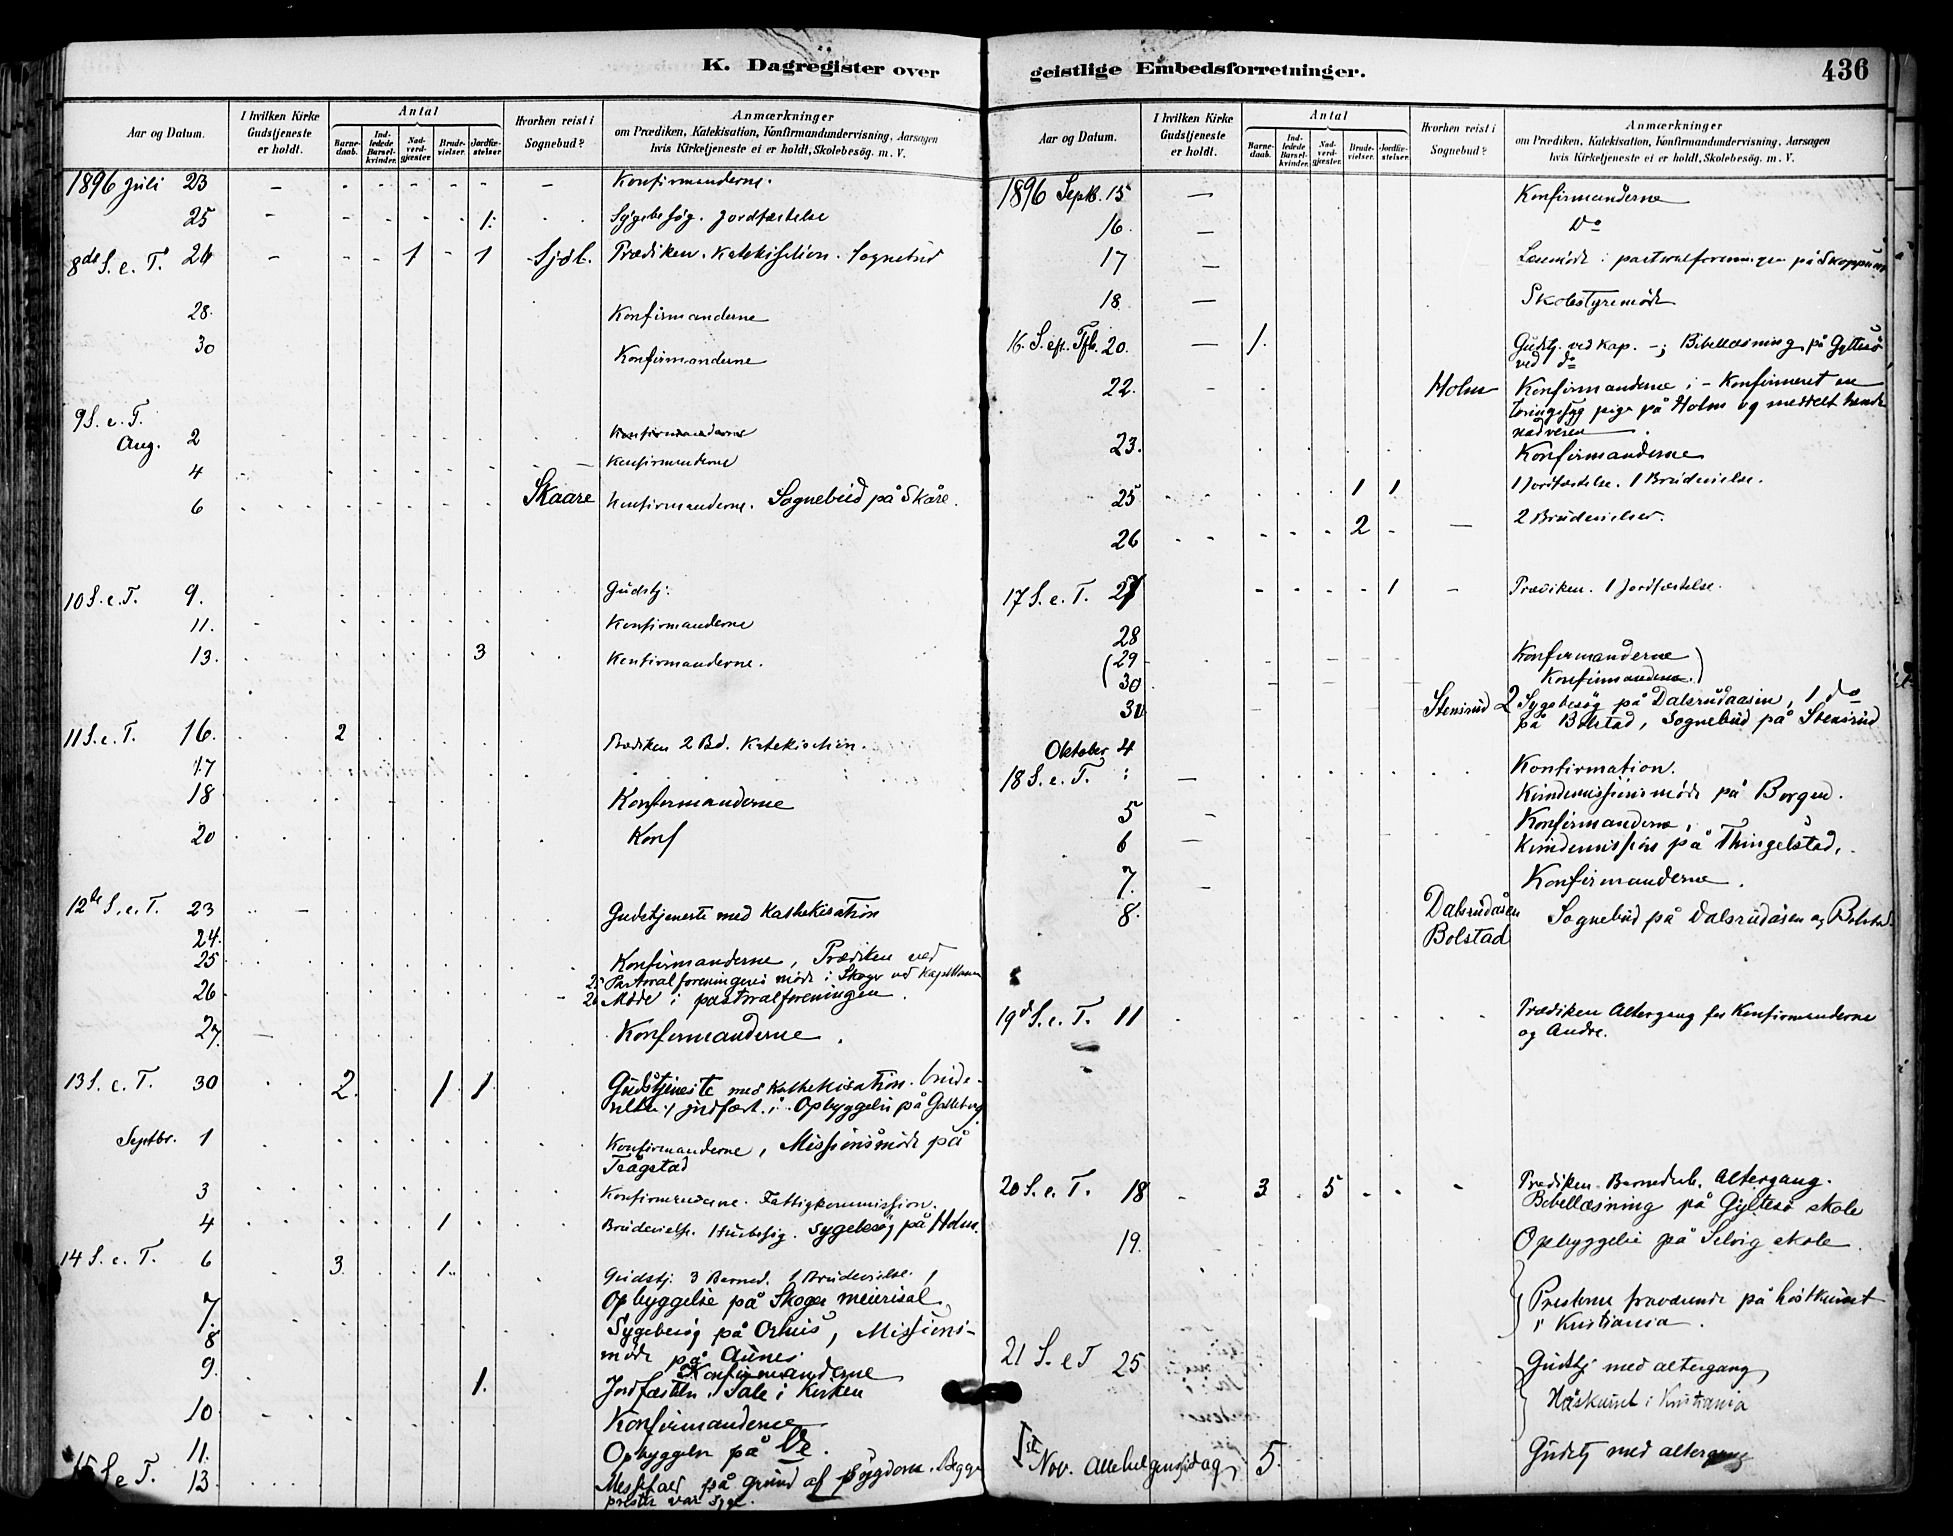 K. Dagregister over
Aar og Datum.
I hvilken Kirke Gudstjeneste er holdt.
Antal
Barne-daab.
Ind-ledede Barsel-kvinder.
Nad-verd-gjæster.
Brude-vielser.
Jordfæ-stelser.
Hvorhen reist i Sognebud?
Anmærkninger
om Prædiken, Katekisation, Konfirmandundervisning, Aarsagen
hvis Kirketjeneste ei er holdt, Skolebesøg. m. V.
1896 Juli 23 - - - - - - - - Konfirmanderne.
25 - - - - - - 1. Sygebesøg. Jordfæstelse
8de S. e. T. 26 - - - 1 - 1 Prædiken. Katekisation. Sognebud
28. Konfirmanderne
30 Konfirmanderne
9 S. e. T.
Aug. 2 Konfirmanderne
4 Konfirmanderne
6 Skaare Konfirmanderne. Sognebud på Skåre.
10 S. e. T. 9. Gudstj.
11. Konfirmanderne
13. 3 Konfirmanderne.
11 S. e. T. 16. 2 Prædiken 2 Bd. Katekisation.
17
18 Konfirmanderne
20 Konf
12te S. e. T. 23 Gudstjeneste med Kathekisation
24.
25 Konfirmanderne, Prædiken ved
25 Pastoralforeningens møde i Skoger ved Kapellanen
26 26 Møde i pastoralforeningen.
27. Konfirmanderne.
13 S. e. T. 30 2. 1 1. Gudstjeneste med Kathekisation. brude-
vielse 1 jordfæst. 1. Opbyggelse på Galleberg
Septbr. 1 Konfirmanderne, Missionsmøde på
Tragstad
3 Konfirmanderne. Fattigkommission.
4 1 Brudevielse. Husbesøg. Sygebesøg på Holm.
14 S. e. T. 6 3. 1. Gudstj. 3 Barned. 1 Brudevielse.
Opbyggelse på Skoger meierisal
7.
8 Sygebesøg på Orhus, Missions-
møde på Aunes
9. 1. Konfirmanderne
Jordfæstelse. Tale i Kirken
10 Konfirmanderne
11. Opbyggelse på Ve.
15 S. e. T. 13 Messefald på grund af sygdom. Begge
prester var syge.
geistlige Embedsforretninger.
436
Aar og Datum.
I hvilken Kirke Gudstjeneste er holdt.
Antal
Barne-daab.
Ind-ledede Barsel-kvinder.
Nad-verd-gjæster.
Brude-vielser.
Jordfæ-stelser.
Hvorhen reist i Sognebud?
Anmærkninger
om Prædiken, Katekisation, Konfirmandundervisning, Aarsagen
hvis Kirketjeneste ei er holdt, Skolebesøg. m. V.
1896 Septb. 15 — Konfirmanderne
16. — Do
17 — Læsemøde i pastoralforeningen på Skoppum
18 — Skolestyremøde
16. S. eft. Tfb. 20. — 1. Gudstj. ved kap. -; Bibellæsning på Gyltesø
ved do
22. - Holm Konfirmanderne; - Konfirmeret en
tæringssyg pige på Holm og meddelt hende
nadveren.
23. Konfirmanderne
25 1 1 1 Jordfæstelse. 1 Brudevielse.
26 2 — 2 Brudevielser.
17 S. e. T. 27 1 Prædiken. 1 Jordfæstelse.
28
29 Konfirmanderne
30 Konfirmanderne.
31 Stensrud 2 Sygebesøg på Dalsrudaasen, 1 do
på Bolstad, Sognebud på Stensrud
Oktober 4
18 S. e. T. — Konfirmation.
Kvindemissionsmøde på Borgen.
5 - Konfirmanderne,
6 — Kvindemission på Thingelstad.
7. - Konfirmanderne.
8. Dalsrudåsen Sognebud på Dalsrudåsen og Bolstad.
Bolstad
19d S. e. T. 11 Prædiken Altergang for Konfirmanderne
og Andre.
20 S. e. T. 18 3 5 Prædiken. Barnedaab. Altergang.
Bibellæsning på Gyltesø skole
19. Opbyggelse på Selvig skole.
Presterne fraværende på høstkurset
i Kristiania.
21 S. e T 25 Gudstj med altergang
Høstkurset i Kristiania
1st Nov. Allehelgensdag 5. Gudstj med altergang